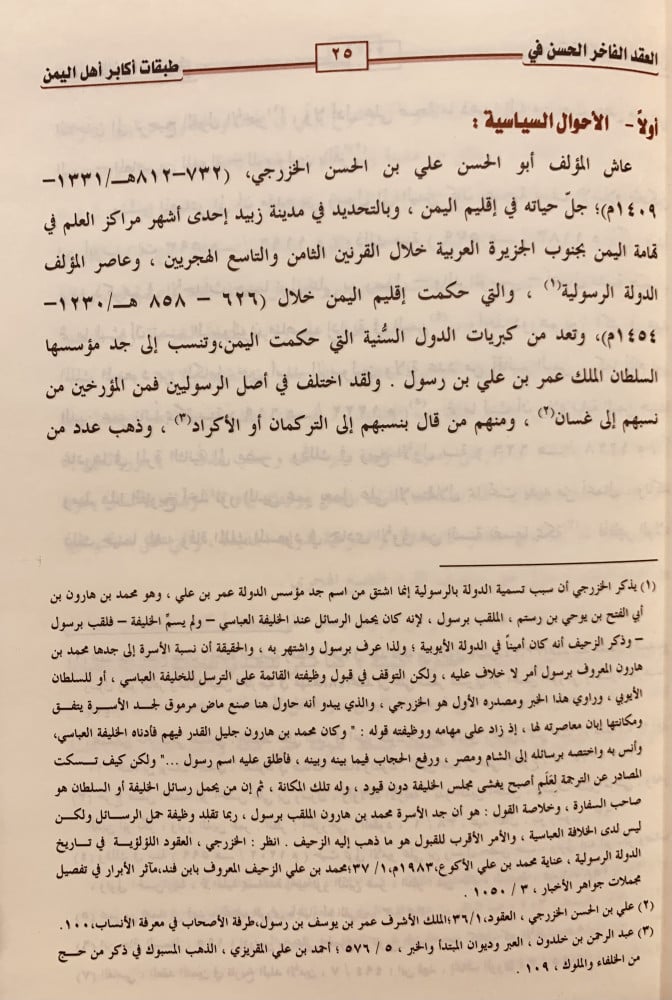 العقد الفاخر الحسن في
٢٥
طبقات أكابر أهل اليمن
أولاً - الأحوال السياسية :
عاش المؤلف أبو الحسن علي بن الحسن الخزرجي، (٧٣٢-٨١٢هـ/١٣٣١-
١٤٠٩م)؛ جلّ حياته في إقليم اليمن ، وبالتحديد في مدينة زبيد إحدى أشهر مراكز العلم في
تهامة اليمن بجنوب الجزيرة العربية خلال القرنين الثامن والتاسع الهجريين ، وعاصر المؤلف
الدولة الرسولية(١) ، والتي حكمت إقليم اليمن خلال (٦٢٦ - ٨٥٨ هـ/١٢٣٠-
١٤٥٤م)، وتعد من كبريات الدول السُّنية التي حكمت اليمن،وتنسب إلى جد مؤسسها
السلطان الملك عمر بن علي بن رسول . ولقد اختلف في أصل الرسوليين فمن المؤرخين من
نسبهم إلى غسان(٢) ، ومنهم من قال بنسبهم إلى التركمان أو الأكراد(٣) ، وذهب عدد من
(١) يذكر الخزرجي أن سبب تسمية الدولة بالرسولية إنما اشتق من اسم جد مؤسس الدولة عمر بن علي ، وهو محمد بن هارون بن
أبي الفتح بن يوحي بن رستم ، الملقب برسول ، لإنه كان يحمل الرسائل عند الخليفة العباسي - ولم يسمِّ الخليفة - فلقب برسول
- وذكر الزحيف أنه كان أميناً في الدولة الأيوبية ؛ ولذا عرف برسول واشتهر به ، والحقيقة أن نسبة الأسرة إلى جدها محمد بن
هارون المعروف برسول أمر لا خلاف عليه ، ولكن التوقف في قبول وظيفته القائمة على الترسل للخليفة العباسي ، أو للسلطان
الأيوبي ، وراوي هذا الخبر ومصدره الأول هو الخزرجي ، والذي يبدو أنه حاول هنا صنع ماض مرموق لجد الأسرة يتفق
ومكانتها إبان معاصرته لها ، إذ زاد على مهامه ووظيفته قوله : " وكان محمد بن هارون جليل القدر فيهم فأدناه الخليفة العباسي،
وأنس به واختصه برسائله إلى الشام ومصر ، ورفع الحجاب فيما بينه وبينه ، فأطلق عليه اسم رسول ..." ولكن كيف تسكت
المصادر عن الترجمة لِعَلَمٍ أصبح يغشى مجلس الخليفة دون قيود ، وله تلك المكانة ، ثم إن من يحمل رسائل الخليفة أو السلطان هو
صاحب السفارة ، وخلاصة القول : هو أن جد الأسرة محمد بن هارون الملقب برسول ، ربما تقلد وظيفة حمل الرسائل ولكن
ليس لدى الخلافة العباسية ، والأمر الأقرب للقبول هو ما ذهب إليه الزحيف . انظر : الخزرجي ، العقود اللؤلؤية في تاريخ
الدولة الرسولية ، عناية محمد بن علي الأكوع،١٩٨٣م،١/ ٣٧؛محمد بن علي الزحيف المعروف بابن فند،مآثر الأبرار في تفصيل
مجملات جواهر الأخبار ، ٣ / ١٠٥٠ .
(٢) علي بن الحسن الخزرجي ، العقود،٣٦/١؛الملك الأشرف عمر بن يوسف بن رسول،طرفة الأصحاب في معرفة الأنساب،١٠٠.
(٣) عبد الرحمن بن خلدون ، العبر وديوان المبتدأ والخبر ، ٥ / ٥٧٦ ؛ أحمد بن علي المقريزي ، الذهب المسبوك في ذكر من حج
من الخلفاء والملوك ، ١٠٩ .